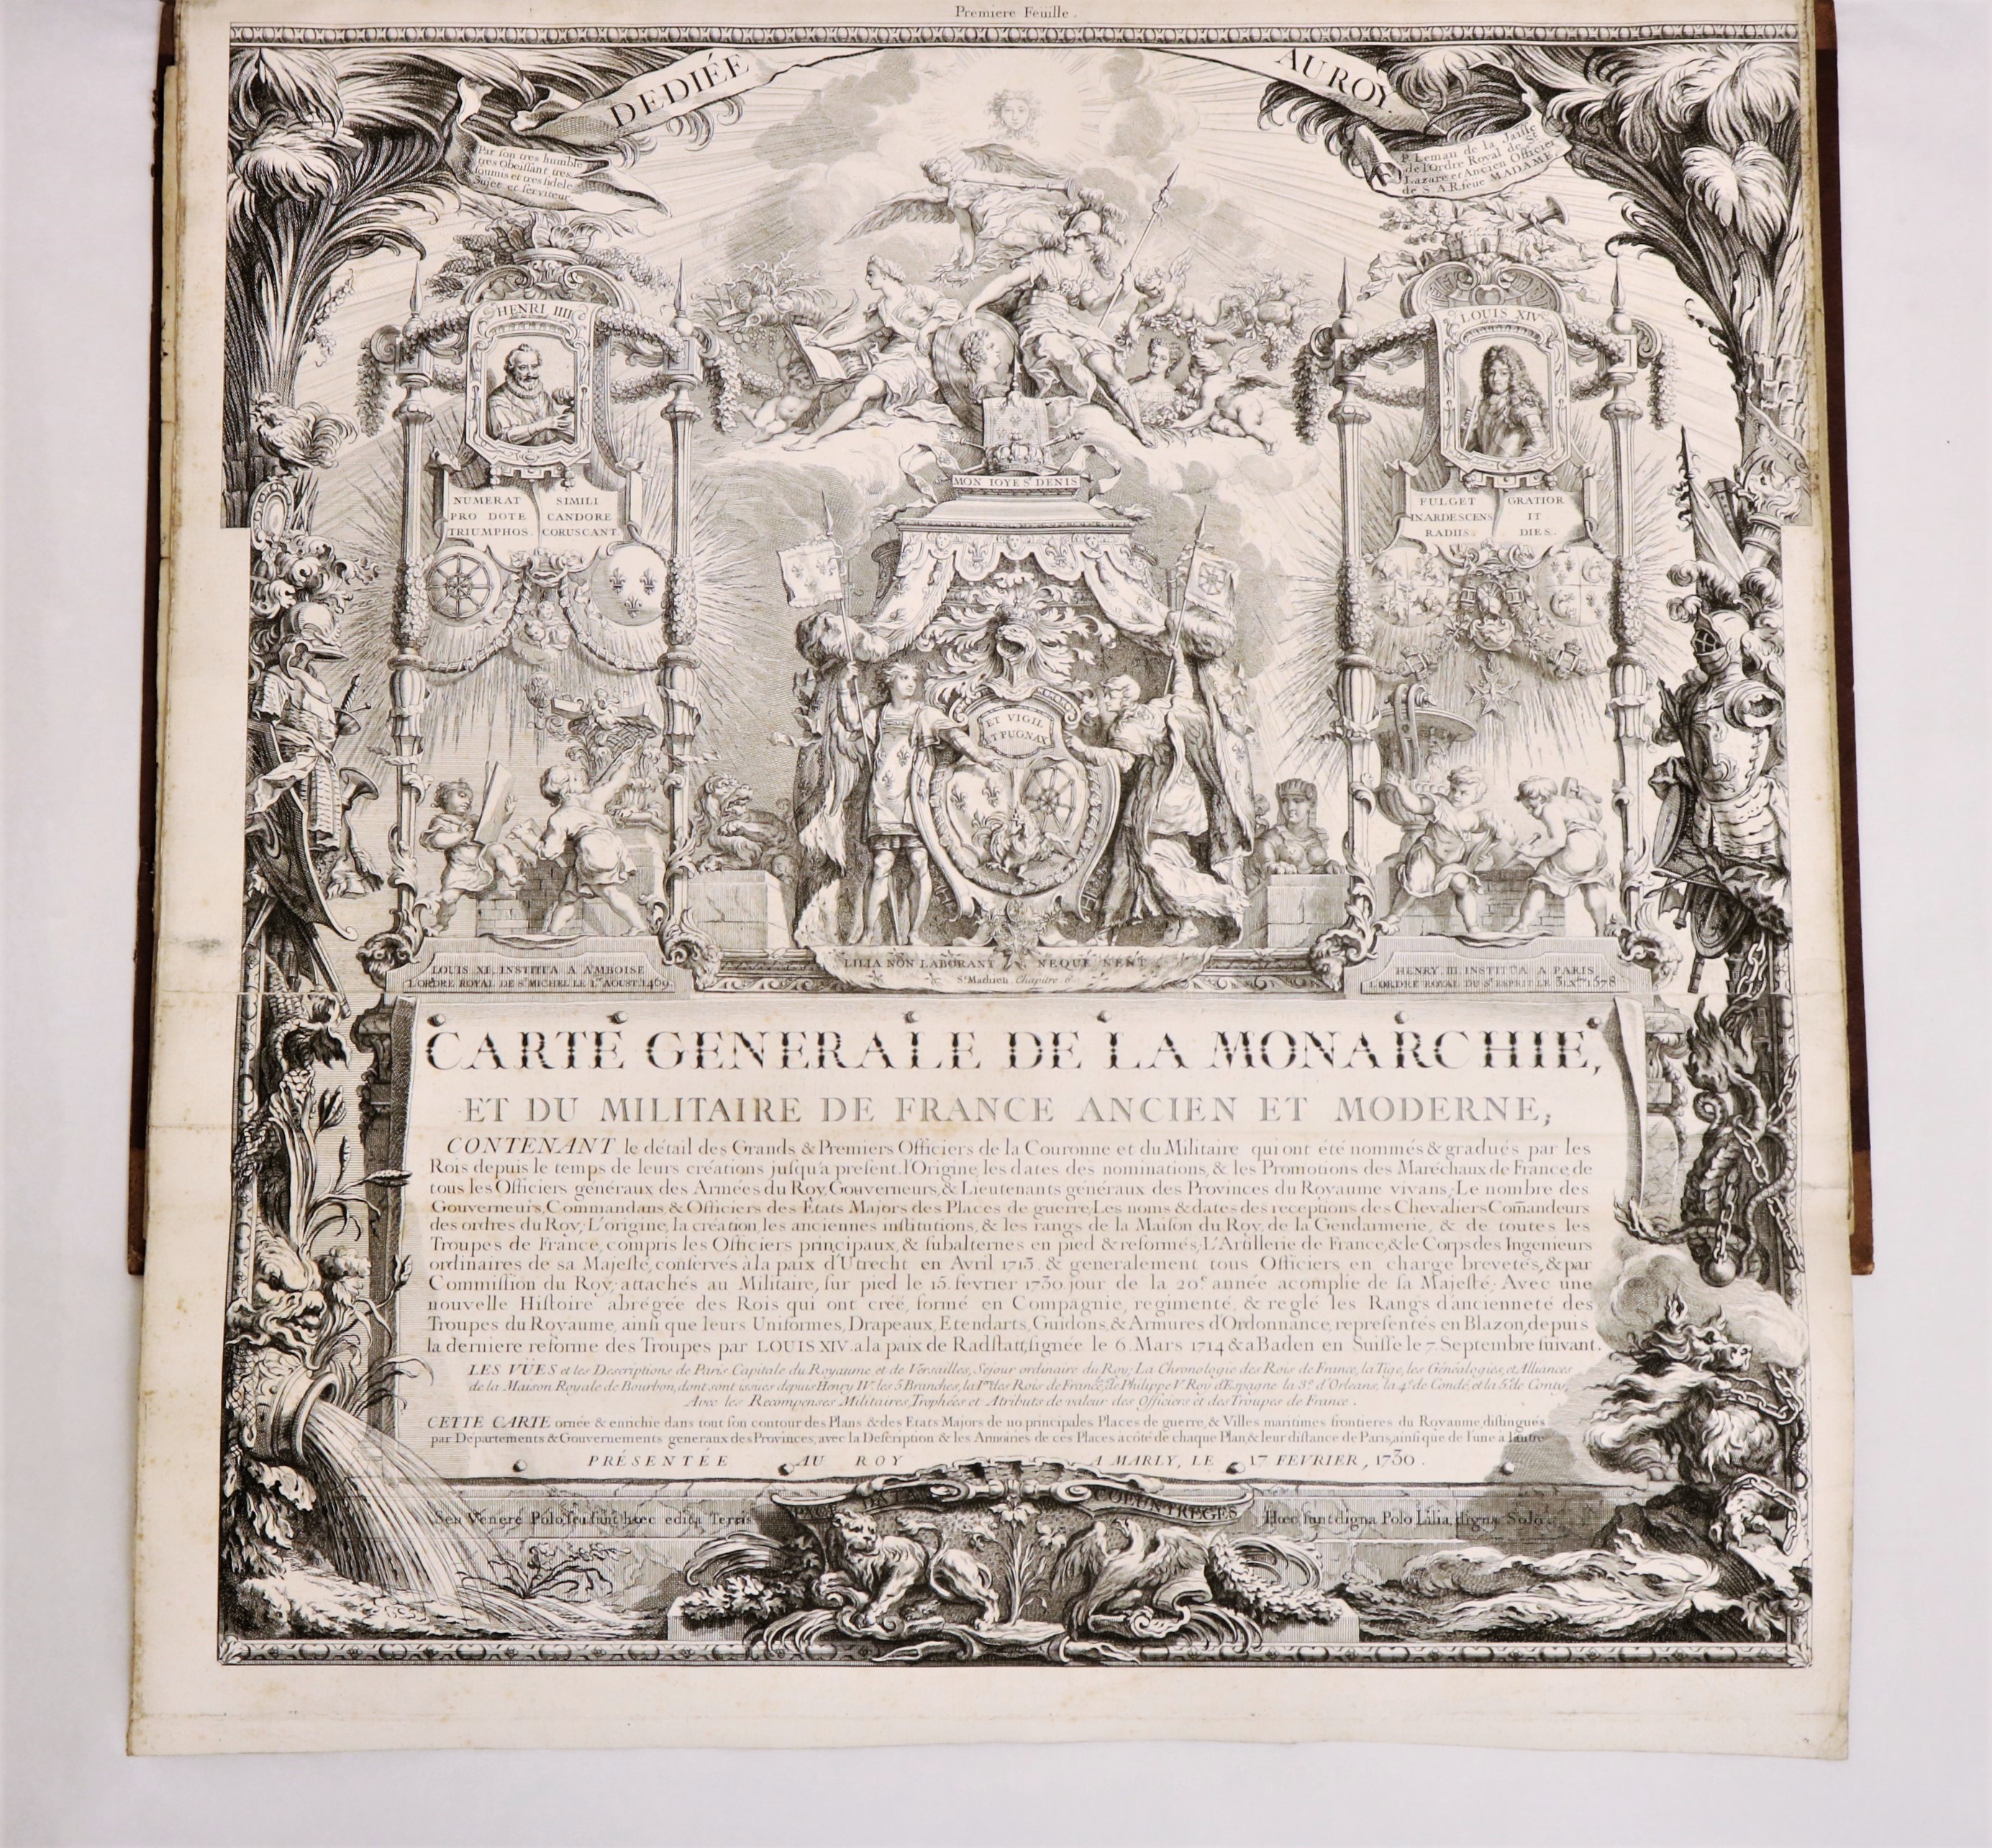 Premiere Feuille.
DEDIÉE
AU ROY
Par son tres humble
tres Obeissant tres
soumis et tres fidele
Sujet et serviteur
P. Lemau de la Jaisse
de l'Ordre Royal de St.
Lazare et Ancien Officier
de S. A. R. feue MADAME
HENRI IIII
LOUIS XIV
NUMERAT
PRO DOTE
TRIUMPHOS.
SIMILI
CANDORE
CORUSCANT
MON IOYE St DENIS
FULGET
INARDESCENS
RADIIS
GRATIOR
IT
DIES.
ET VIGIL
ET PUGNAX
LOUIS XI. INSTITUA A AMBOISE
L'ORDRE ROYAL DE St MICHEL LE 1er AOUST. 1469
LILIA NON LABORANT NEQUE NENT
St Mathieu Chapitre 6
HENRY. III. INSTITUA A PARIS
L'ORDRE ROYAL DU St ESPRIT LE 31 Xbre 1578
CARTE GENERALE DE LA MONARCHIE,
ET DU MILITAIRE DE FRANCE ANCIEN ET MODERNE;
CONTENANT le détail des Grands & Premiers Officiers de la Couronne et du Militaire qui ont été nommés & gradués par les
Rois depuis le temps de leurs créations jusqu'a present. l'Origine, les dates des nominations, & les Promotions des Maréchaux de France, de
tous les Officiers généraux des Armées du Roy, Gouverneurs, & Lieutenants généraux des Provinces du Royaume vivans; Le nombre des
Gouverneurs, Commandans, & Officiers des Etats Majors des Places de guerre; Les noms & dates des receptions des Chevaliers Com̃andeurs
des ordres du Roy; L'origine, la création, les anciennes institutions, & les rangs de la Maison du Roy, de la Gendarmerie, & de toutes les
Troupes de France, compris les Officiers principaux, & subalternes en pied & reformés; L'Artillerie de France, & le Corps des Ingenieurs
ordinaires de sa Majesté, conservés à la paix d'Utrecht en Avril 1713. & generalement tous Officiers en charge brevetés, & par
Commission du Roy, attachés au Militaire, sur pied le 15. fevrier 1730. jour de la 20e année acomplie de sa Majesté; Avec une
nouvelle Histoire abrégée des Rois qui ont créé, formé en Compagnie, regimenté, & reglé les Rangs d'ancienneté des
Troupes du Royaume, ainsi que leurs Uniformes, Drapeaux, Etendarts, Guidons, & Armures d'Ordonnance, representés en Blazon, depuis
la derniere reforme des Troupes par LOUIS XIV. a la paix de Radstatt, signée le 6. Mars 1714 & a Baden en Suisse le 7. Septembre suivant.
LES VÜES et les Descriptions de Paris Capitale du Royaume et de Versailles, Sejour ordinaire du Roy; La Chronologie des Rois de France, la Tige, les Généalogies, et Alliances
de la Maison Royale de Bourbon, dont sont issues depuis Henry IV. les 5 Branches, la 1re des Rois de France, la 2e de Philippe V. Roy d'Espagne la 3e d'Orleans, la 4e de Condé, et la 5e de Conty,
Avec les Recompenses Militaires, Trophées et Atributs de valeur des Officiers et des Troupes de France.
CETTE CARTE ornée & enrichie dans tout son contour des Plans & des Etats Majors de 110 principales Places de guerre, & Villes maritimes frontieres du Royaume, distingués
par Departements & Gouvernements generaux des Provinces, avec la Description & les Armoiries de ces Places a côté de chaque Plan, & leur distance de Paris, ainsi que de l'une à l'autre
PRÉSENTÉE AU ROY A MARLY, LE 17 FEVRIER, 1730.
Seu Venere Polo, seu sunt hæc edita Terris
Hæc sunt digna Polo Lilia, digna Solo.